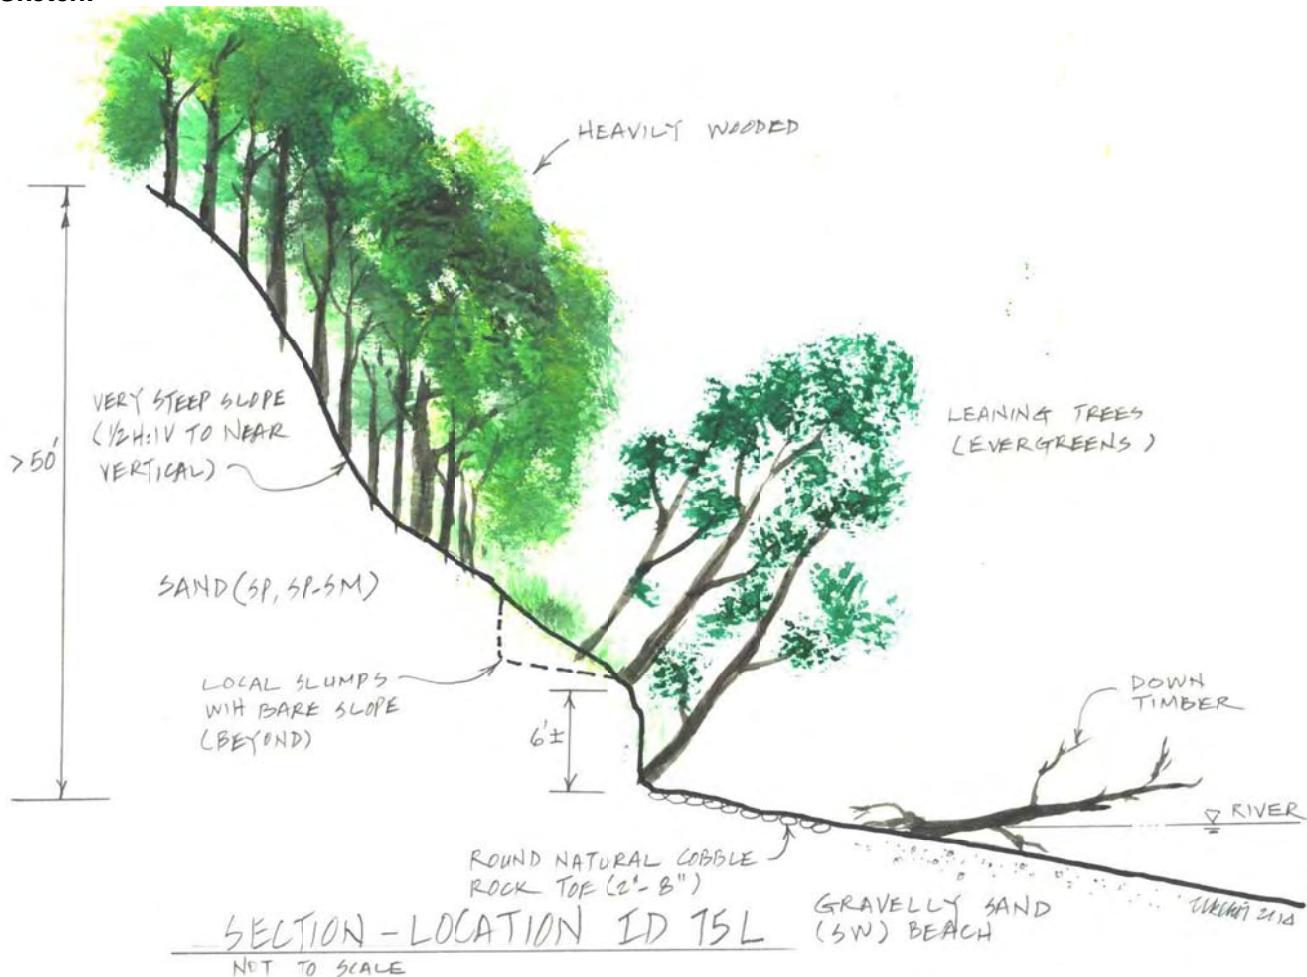 HEAVILY WOODED
VERY STEEP SLOPE
(1/2H:1V TO NEAR
VERTICAL)
>50'
LEANING TREES
(EVERGREENS)
SAND (SP, SP-SM)
LOCAL SLUMPS
WIH BARE SLOPE
(BEYOND)
6'±
DOWN
TIMBER
RIVER
ROUND NATURAL COBBLE
ROCK TOE (2"-8")
GRAVELLY SAND
(SW) BEACH
SECTION - LOCATION ID 75L
NOT TO SCALE